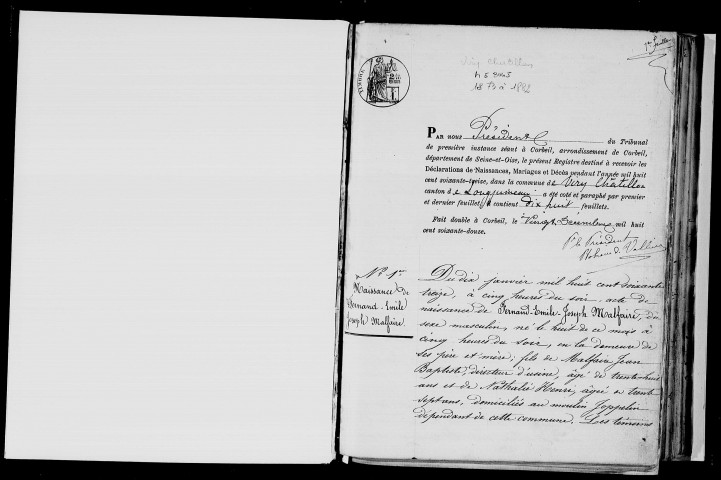 1er feuillet
Viry Chatillon
1873 à 1882
TIMBRE
PAR nous Président du Tribunal
de première instance séant à Corbeil, arrondissement de Corbeil,
département de Seine-et-Oise, le présent Registre destiné à recevoir les
Déclarations de Naissances, Mariages et Décès pendant l'année mil huit
cent soixante-treize, dans la commune de Viry Chatillon
canton de Longjumeau a été coté et paraphé par premier
et dernier feuillet, & contient dix huit feuillets.
Fait double à Corbeil, le vingt Décembre mil huit
cent soixante-douze.
Pr le Président
No 1er
Naissance de
Fernand-Emile
Joseph Malfaire.
Du dix janvier mil huit cent soixante
treize, à cinq heures du soir, acte de
naissance de Fernand-Emile-Joseph Malfaire, du
sexe masculin, né le huit de ce mois à
cinq heures du soir, en la demeure de
ses père et mère; fils de Malfaire Jean
Baptiste, directeur d'usine, âgé de trente-huit
ans et de Nathalie Henri, âgée de trente
sept ans, domiciliés au moulin
dépendant de cette commune. Les témoins